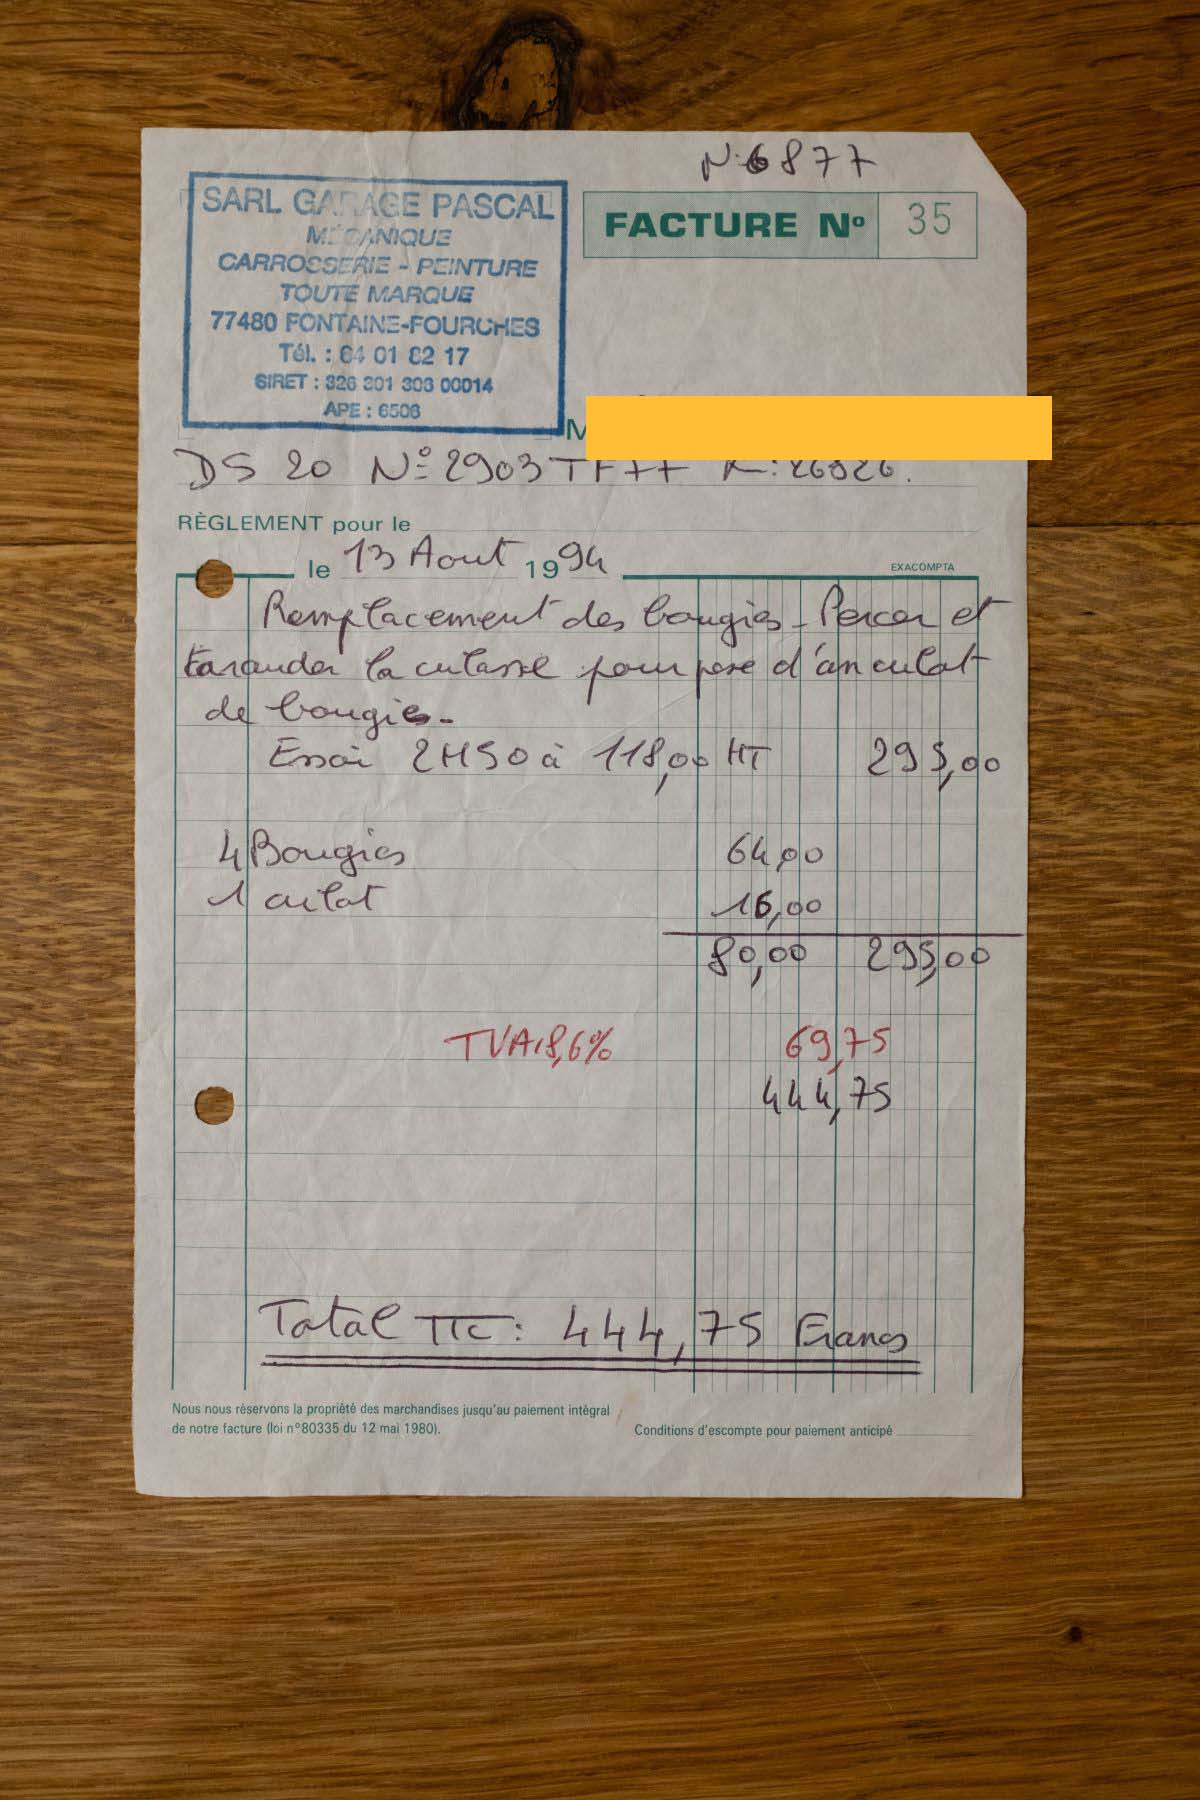 N: 6877
SARL GARAGE PASCAL
MÉCANIQUE
CARROSSERIE - PEINTURE
TOUTE MARQUE
77480 FONTAINE-FOURCHES
Tél. : 64 01 82 17
SIRET : 326 301 303 00014
APE : 6506
FACTURE No 35
M
DS 20 No 2903 TF77 K: 26826.
RÈGLEMENT pour le
le 13 Aout 1994
EXACOMPTA
Remplacement des bougies - Percer et
tarauder la culasse pour pose d'un culot
de bougies -
Essai 2H50 à 118,00 HT 295,00
4 Bougies 64,00
1 culot 16,00
80,00 295,00
TVA 18,6% 69,75
444,75
Total TTC : 444,75 Francs
Nous nous réservons la propriété des marchandises jusqu'au paiement intégral
de notre facture (loi n°80335 du 12 mai 1980).
Conditions d'escompte pour paiement anticipé